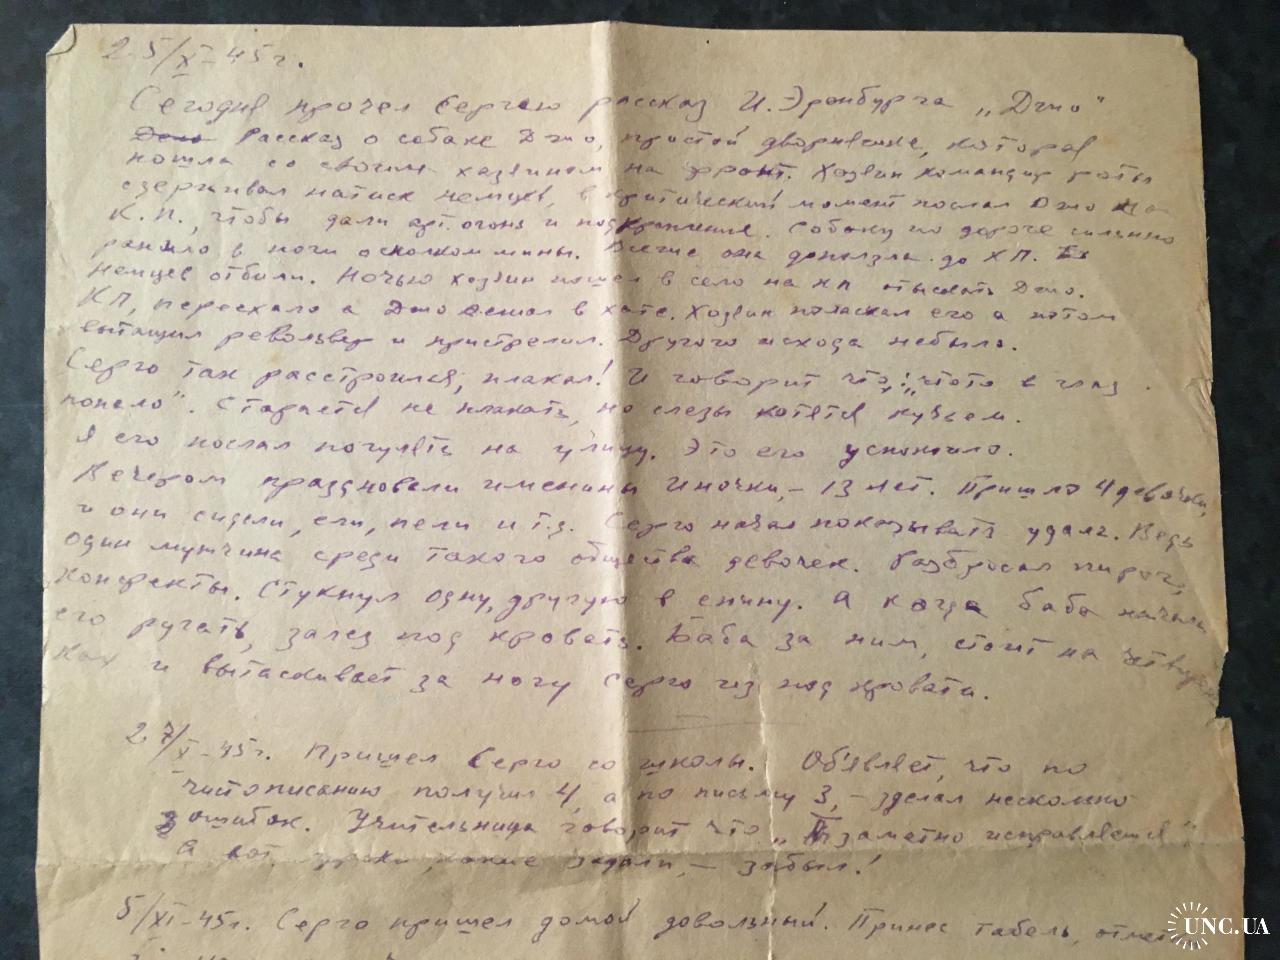 25/X-45г.
Сегодня прочел Сергею рассказ И. Эренбурга „Джо"
Рассказ о собаке Джо, простой дворняшке, которая
пошла со своим хозяином на фронт. Хозяин командир роты
сдерживал натиск немцев, в критический момент послал Джо на
К.П., чтобы дали арт. огонь и подкрепление. Собаку по дороге сильно
ранило в ноги осколком мины. Все же она доползла до КП.
Немцев отбили. Ночью хозяин пошел в село на КП отыскать Джо.
КП, переехало а Джо лежал в хате. Хозяин поласкал его а потом
вытащил револьвер и пристрелил. Другого исхода небыло.
Серго так расстроился, плакал! И говорит что: „чтото в глаз
попало". Старается не плакать, но слезы котятся ручьем.
Я его послал погулять на улицу. Это его успокоило.
Вечером праздновали именины Иночки, - 13 лет. Пришло 4 девочки,
и они сидели, ели, пели и т.д. Серго начал показывать удаль. Ведь
один мужчина среди такого общества девочек. Разбросал пирог,
конфекты. Стукнул одну, другую в спину. А когда баба начала
его ругать, залез под кровать. Баба за ним, стоит на четвереньках
и вытаскивает за ногу Серго из под кровати.
27/X-45г. Пришел Серго со школы. Об'являет, что по
чистописанию получил 4, а по письму 3, - зделал несколько
ошибок. Учительница говорит что „заметно исправляется".
А вот уроки какие задали, - забыл!
5/XI-45г. Серго пришел домой довольный. Принес табель,
UNC.UA